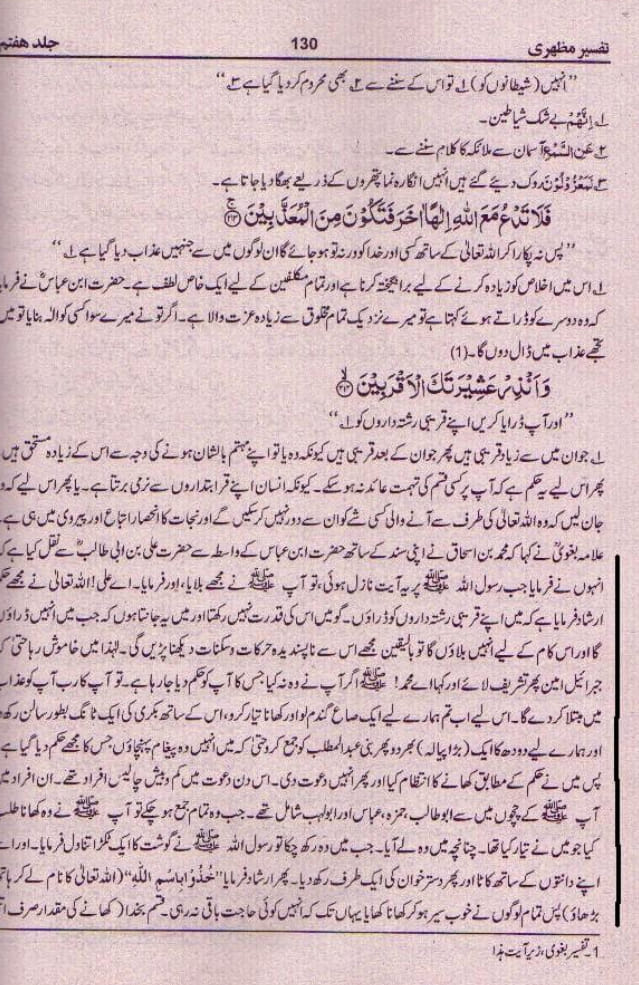 تفسیر مظہری 130 جلد ہفتم
’’انہیں (شیطانوں کو) ۱؎ تو اس کے سننے سے ۲؎ بھی محروم کر دیا گیا ہے ۳؎‘‘
۱؎ اِنَّهُمْ بے شک شیاطین۔
۲؎ عَنِ السَّمْعِ آسمان سے ملائکہ کا کلام سننے سے۔
۳؎ لَمَعْزُوْلُوْنَ روک دیئے گئے ہیں انہیں انگارہ نما پتھروں کے ذریعے بھگا دیا جاتا ہے۔
فَلَا تَدْعُ مَعَ اللّٰهِ اِلٰهًا اٰخَرَ فَتَكُوْنَ مِنَ الْمُعَذَّبِيْنَ ﴿۲۱۳﴾ۚ
’’پس نہ پکارا کر اللہ تعالیٰ کے ساتھ کسی اور خدا کو ورنہ تو ہو جائے گا ان لوگوں میں سے جنہیں عذاب دیا گیا ہے ۱؎‘‘
۱؎ اس میں اخلاص کو زیادہ کرنے کے لیے برانگیختہ کرنا ہے اور تمام مکلفین کے لیے ایک خاص لطف ہے۔ حضرت ابن عباسؓ نے فرمایا
کہ وہ دوسرے کو ڈراتے ہوئے کہتا ہے تو میرے نزدیک تمام مخلوق سے زیادہ عزت والا ہے۔ اگر تو نے میرے سوا کسی کو الٰہ بنایا تو میں
تجھے عذاب میں ڈال دوں گا۔ (1)
وَ اَنْذِرْ عَشِيْرَتَكَ الْاَقْرَبِيْنَ ﴿۲۱۴﴾ۙ
’’اور آپ ڈرایا کریں اپنے قریبی رشتہ داروں کو ۱؎‘‘
۱؎ جو ان میں سے زیادہ قریبی ہیں پھر جو ان کے بعد قریبی ہیں کیونکہ وہ یا تو اپنے مہتم بالشان ہونے کی وجہ سے اس کے زیادہ مستحق ہیں
پھر اس لیے یہ حکم ہے کہ آپ پر کسی قسم کی تہمت عائد نہ ہو سکے۔ کیونکہ انسان اپنے قرابتداروں سے نرمی برتتا ہے۔ یا پھر اس لیے کہ
جان لیں کہ وہ اللہ تعالیٰ کی طرف سے آنے والی کسی شے کو ان سے دور نہیں کر سکیں گے اور نجات کا انحصار اتباع اور پیروی میں ہی ہے
علامہ بغویؒ نے کہا کہ محمد بن اسحاق نے اپنی سند کے ساتھ حضرت ابن عباس کے واسطہ سے حضرت علی بن ابی طالبؓ سے نقل کیا ہے کہ
انہوں نے فرمایا جب رسول اللہ ﷺ پر یہ آیت نازل ہوئی، تو آپ ﷺ نے مجھے بلایا، اور فرمایا۔ اے علی! اللہ تعالیٰ نے مجھے
ارشاد فرمایا ہے کہ میں اپنے قریبی رشتہ داروں کو ڈراؤں۔ گو میں اس کی قدرت نہیں رکھتا اور میں یہ جانتا ہوں کہ جب میں انہیں ڈراؤں
گا اور اس کام کے لیے انہیں بلاؤں گا تو بالیقین مجھے اس سے ناپسندیدہ حرکات و سکنات دیکھنا پڑیں گی۔ لہٰذا میں خاموش رہا حتیٰ کہ
جبرائیل امین پھر تشریف لائے اور کہا اے محمد! ﷺ اگر آپ نے وہ نہ کیا جس کا آپ کو حکم دیا جا رہا ہے۔ تو آپ کا رب آپ کو عذاب
میں مبتلا کر دے گا۔ اس لیے اب تم ہمارے لیے ایک صاع گندم لو اور کھانا تیار کرو، اس کے ساتھ بکری کی ایک ٹانگ بطور سالن رکھو
اور ہمارے لیے دودھ کا ایک (بڑا پیالہ) بھر دو پھر بنی عبدالمطلب کو جمع کرو حتیٰ کہ میں انہیں وہ پیغام پہنچاؤں جس کا مجھے حکم دیا گیا ہے
پس میں نے حکم کے مطابق کھانے کا انتظام کیا اور پھر انہیں دعوت دی۔ اس دن دعوت میں کم و بیش چالیس افراد تھے۔ ان افراد میں
آپ ﷺ کے چچوں میں سے ابوطالب، حمزہ، عباس اور ابولہب شامل تھے۔ جب وہ تمام جمع ہو چکے تو آپ ﷺ نے وہ کھانا طلب
کیا جو میں نے تیار کیا تھا۔ چنانچہ میں وہ لے آیا۔ جب میں وہ رکھ چکا تو رسول اللہ ﷺ نے گوشت کا ایک ٹکڑا تناول فرمایا۔ اور اسے
اپنے دانتوں کے ساتھ کاٹا اور پھر دسترخوان کی ایک طرف رکھ دیا۔ پھر ارشاد فرمایا ’’خُذُوْا بِاسْمِ اللّٰهِ‘‘ (اللہ تعالیٰ کا نام لے کر ہاتھ
بڑھاؤ) پس تمام لوگوں نے خوب سیر ہو کر کھانا کھایا یہاں تک کہ انہیں کوئی حاجت باقی نہ رہی۔ قسم بخدا (کھانے کی مقدار صرف
1۔ تفسیر بغوی، زیر آیت ہذا